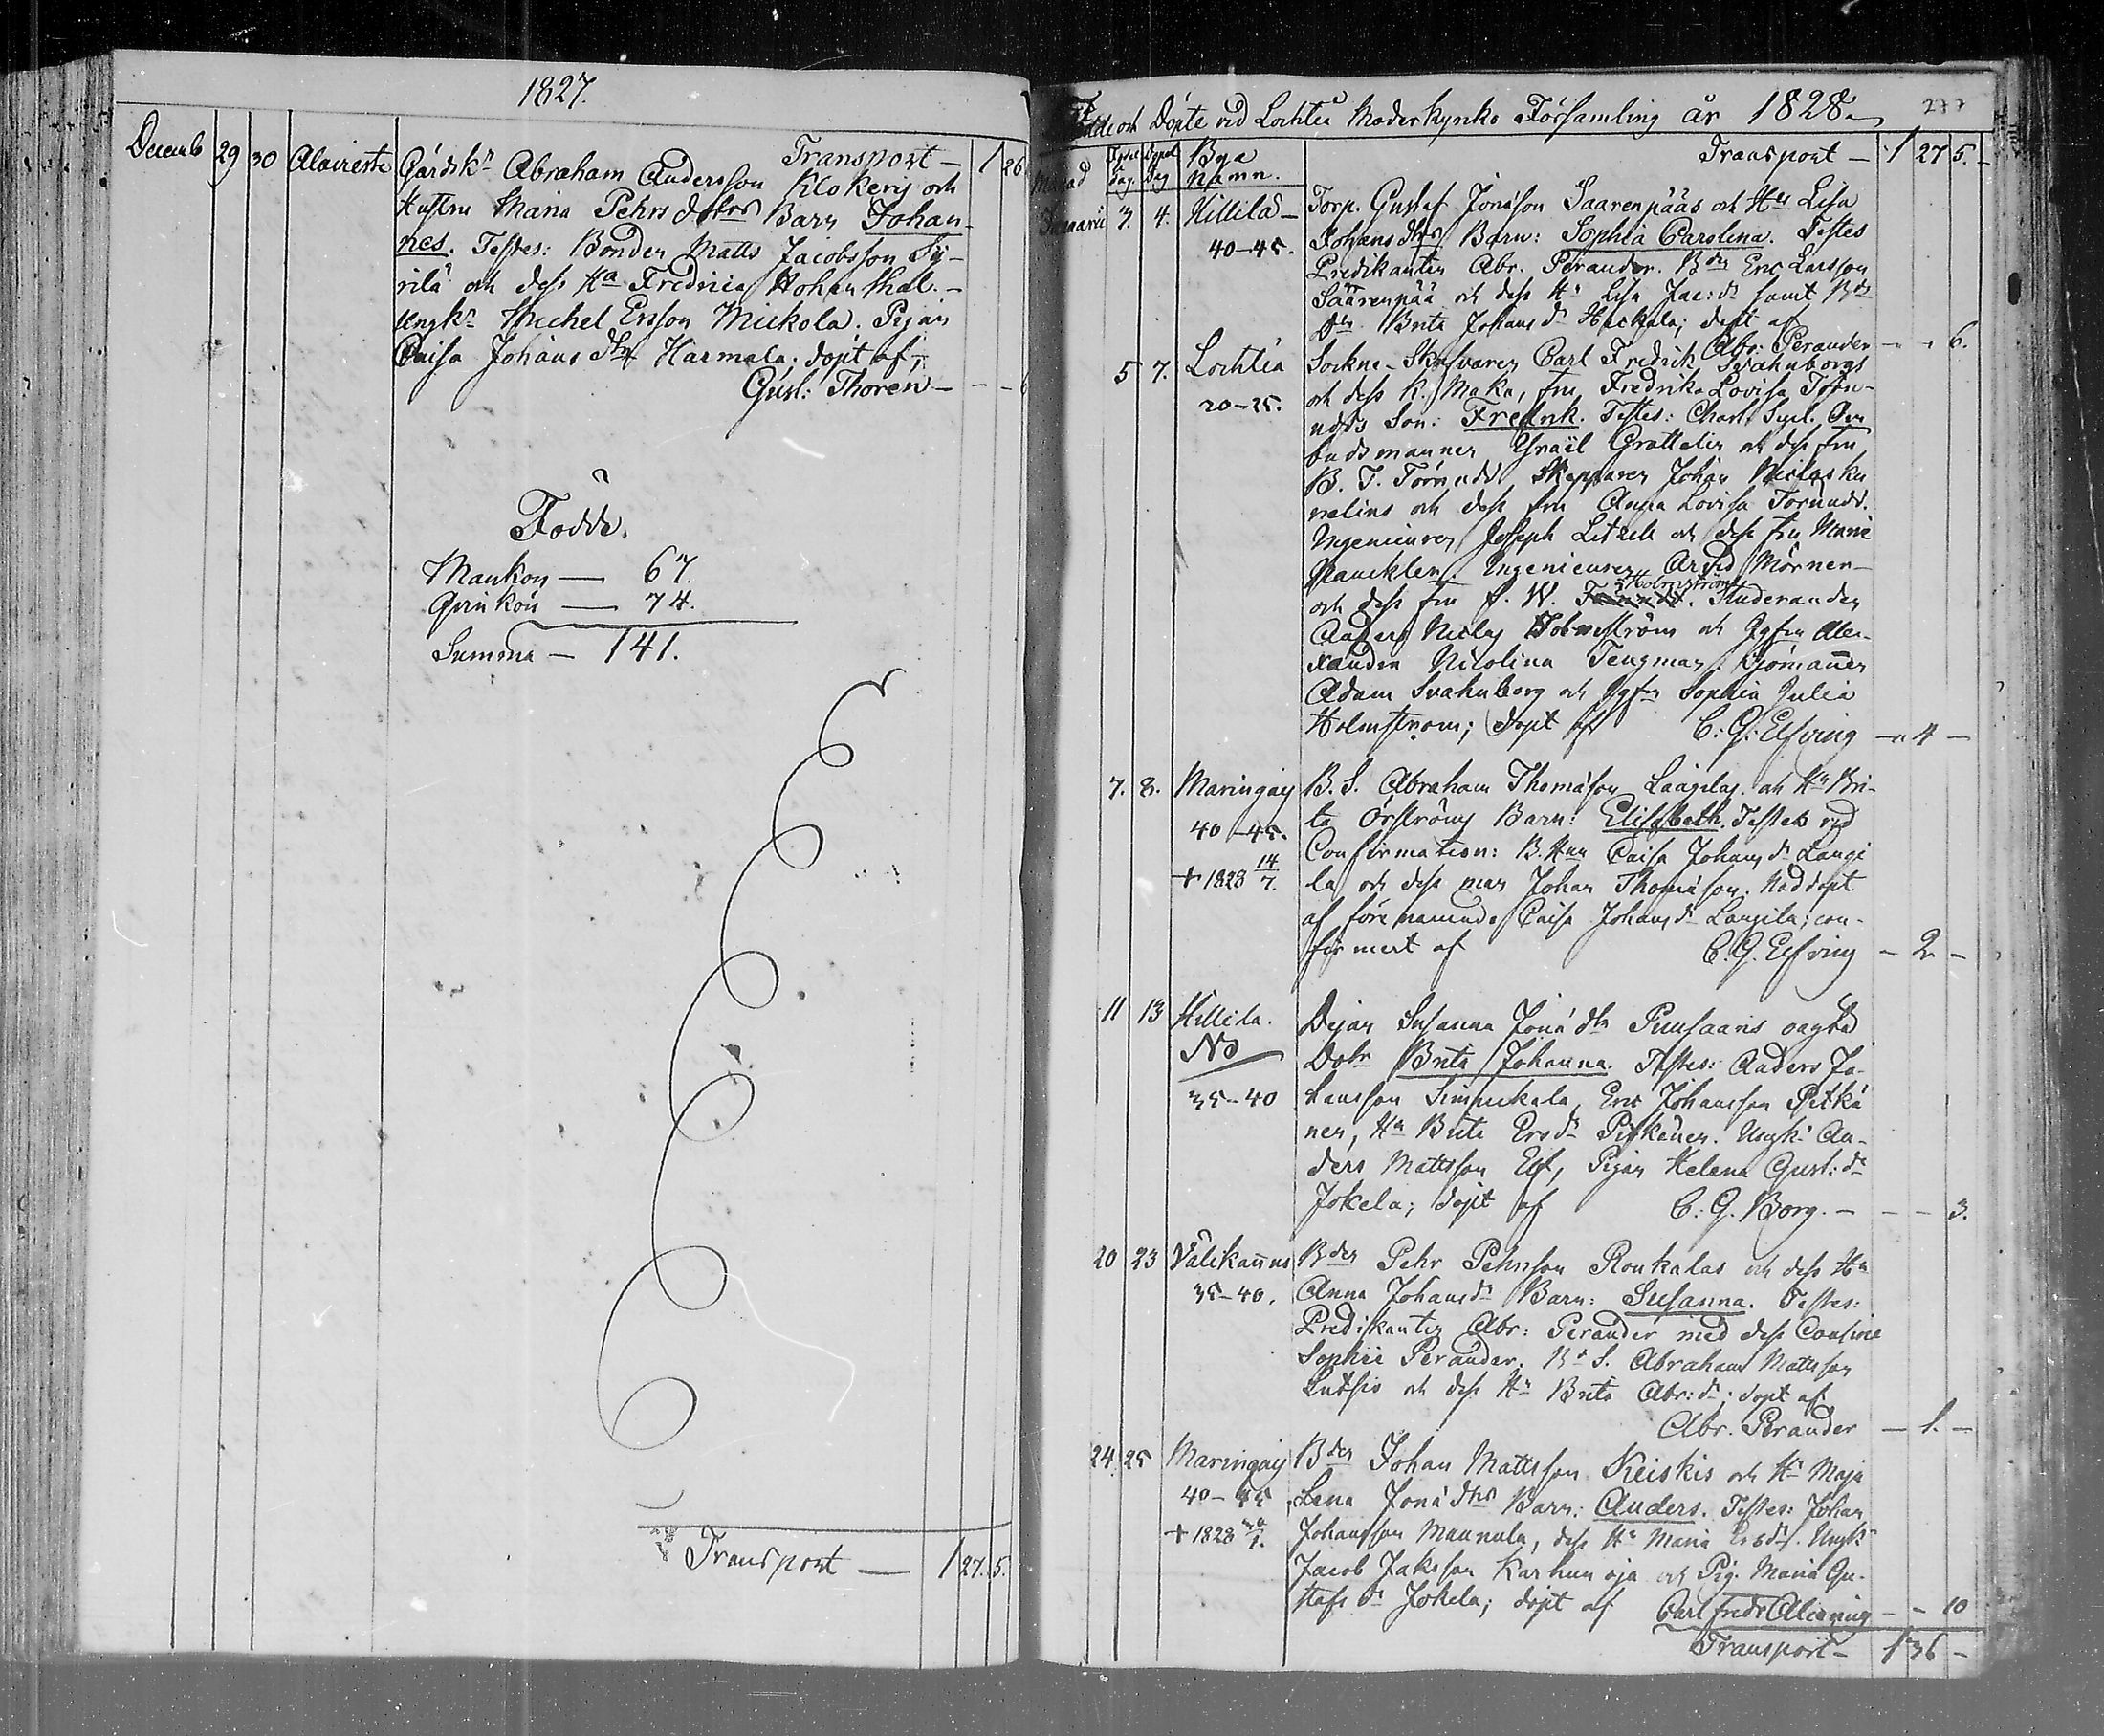 1827.
Decemb 29 30 Alavirette Transport — 1 26
Gårdsk:n Abraham Andersson Klokerij och
Hustru Maria Pehrs dotters Barn Johan-
nes. Testes: Bonden Matts Jacobsson Ty-
rilä och dess H:a Fredrica Hohenthal. —
Ungk:n Michel Ersson Mickola. Pigan
Caisa Johans dtr Harmala; döpt af;
Gust: Thoren — — — 6
Födde.
Mankön — 67.
Qvinkön — 74.
Summa — 141.
Transport — 1 27. 5.
Födde och Döpte vid Lochteå Moderkyrko Församling år 1828. 277
Månad Född. dag. Döpel. Dag Bya Namn. Transport — 1 27 5. —
Januarii 3. 4. Hillilä — Torp. Gustaf Jonasson Saarenpääs och H:us Lisa
40–45. Johans dtrs Barn: Sophia Carolina. Testes
Predikanten Abr. Perander. B:den Eric Larsson
Säärenpää och dess H:u Lisa Jac: d:r samt B:de
Brita Johans d:r Hackala; döpt af
Abr: Perander — „ 6.
5 7. Lochteå Sockne-Skrifvaren Carl Fredrik Svahnbergs
20–25. och dess K. Maka, fru Fredrika Lovisa Törn-
udds Son: Fredrik. Testes:
budsmannen och dess fru
B. J. Törnudd, Skepparen Johan
nelius och dess fru Anna Lovisa Törnudd.
Ingenieuren Joseph och dess fru Maria
Ingenieuren Arvid Mörner
Holmström
och dess fru F. W. Studeranden
Anders Niclas Holmström och Jgfru Alex-
xandra Nicolina Tengman. Sjömannen
Adam Svahnberg och Jgfru Sophia Julia
Holmström; döpt af C: G: Elfving — „ 4 —
7. 8. Maringais B. S. Abraham Thomasson Laagilas och H:u Bri-
40–45. ta Örströms Barn: Elisabeth. Testes vid
Confirmation: B. H:un Caisa Johans d:r Langi
+ 1828 14/7. la och dess man Johan Thomasson. Nöddöpt
af förenämnde Caisa Johans d:r Langila; con-
firmert af C. G. Elfving — 2 —
11 13 Hillilä. Pigan Susanna Jona dtr Puusaaris oägta
No Dotr Brita Johanna. Testes: Anders Jo-
35–40 hansson Simuckala, Eric Johansson Pitkä
nen, H:u Brita Ers d:r Pitkänen. Ungk: An-
ders Mattsson Elf, Pigan Helena Gust: d:r
Jokela; döpt af C. G. Borg. — — — 3.
20 23 Välikannus B:den Pehr Pehrsson Roukalas och dess H:u
35–40. Anna Johans d:r Barn: Susanna. Testes:
Predikanten Abr: Perander med dess Cousine
Sophie Perander. B:s S. Abraham Mattsson
och dess H:u Brita Abr: d:r; döpt af
Abr. Perander — 1. —
24 25 Maringais B:den Johan Mattsson Keiskis och H:u Maja
40–45 Lena Jona dtrs Barn: Anders. Testes: Johan
+ 1828 Johansson Mannula, dess H:u Maria Ers d:r. Ungk:
Jacob Jaksson Karhun oja och Pig. Maria Gu-
stafs d:r Jokela; döpt af Carl Fredr Alcenius — — 10
Transport — 1 36 —